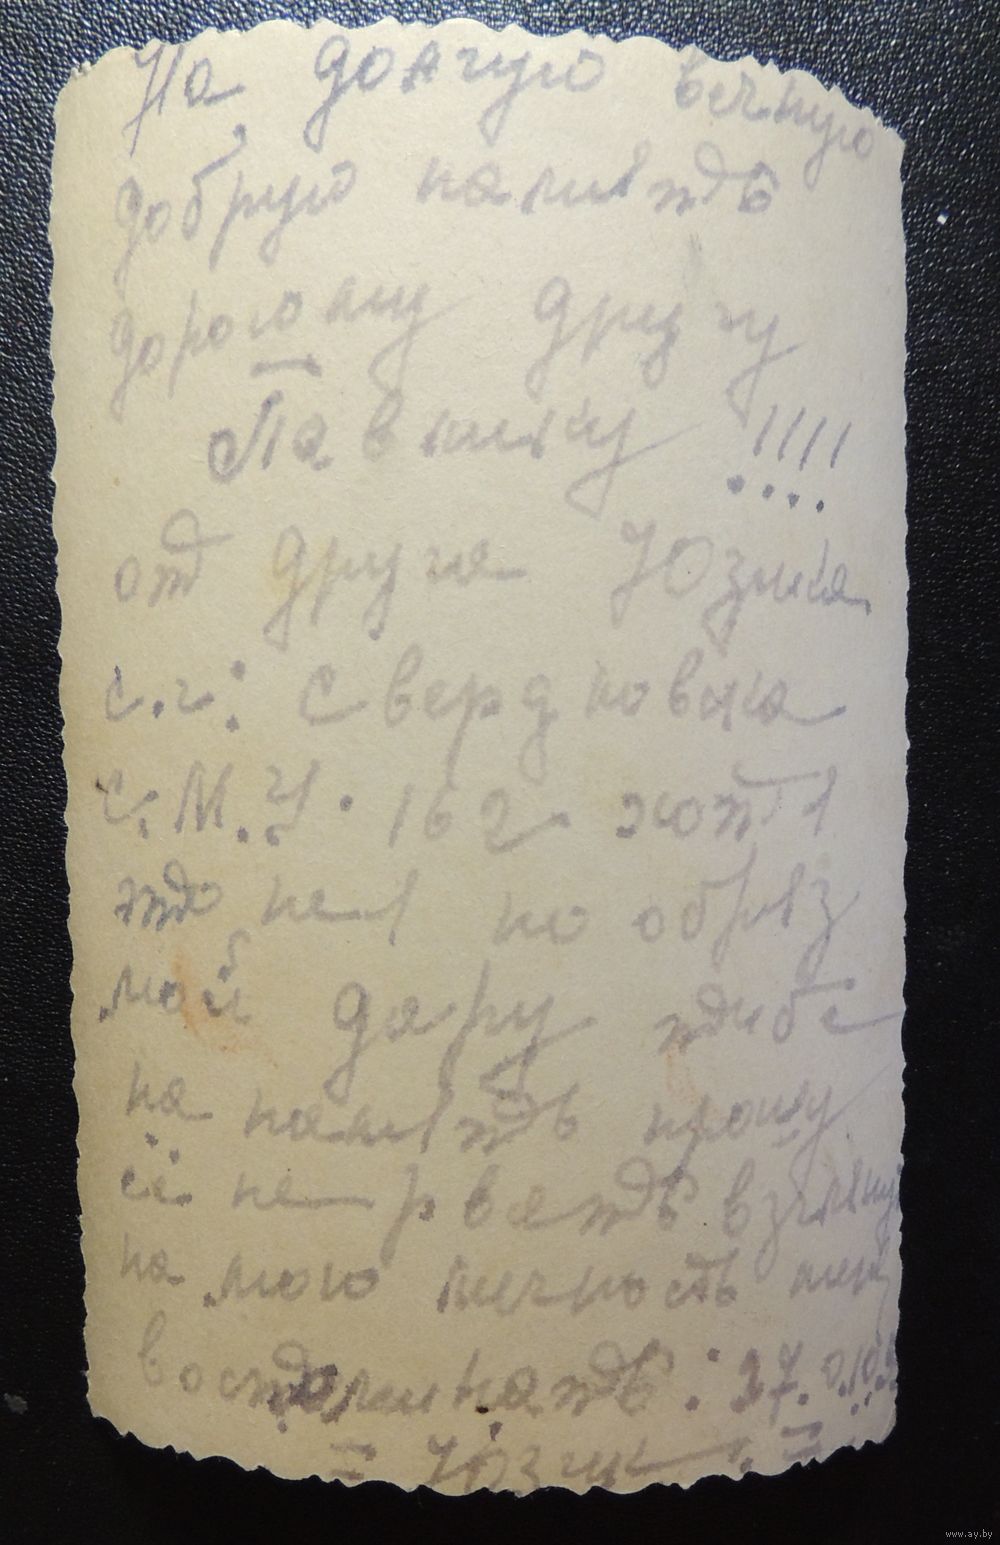 На долгую вечную
добрую памядь
дорогому другу
Павлику !!!!
от друга Юзика
с.г: Свердловка
с.М.У. 162 хотя
это не я но образ
мой дару тибе
на памядь прошу
её не рвадь взгляну
на мою личность
:27.
= Юзик. =
www.ay.by